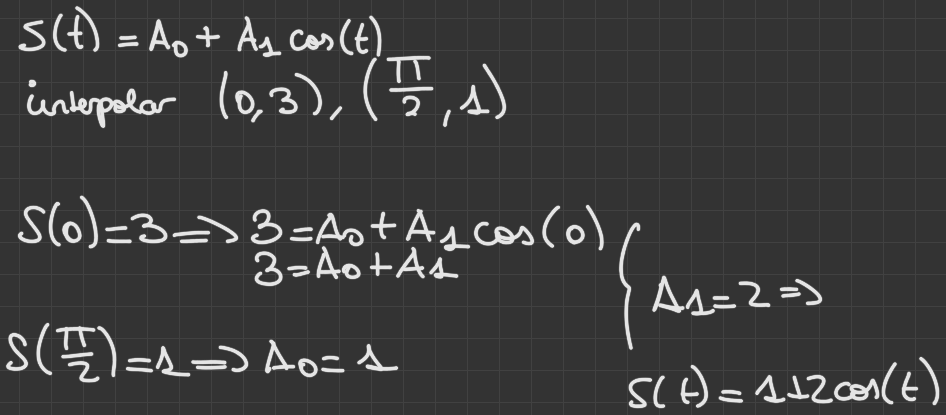 S(t) = A₀ + A₁ cos(t)
interpolar (0,3), (π/2, 1)
S(0)=3 => 3=A₀+A₁cos(0)
3=A₀+A₁
S(π/2)=1 => A₀=1
A₁=2 =>
S(t)=1+2cos(t)